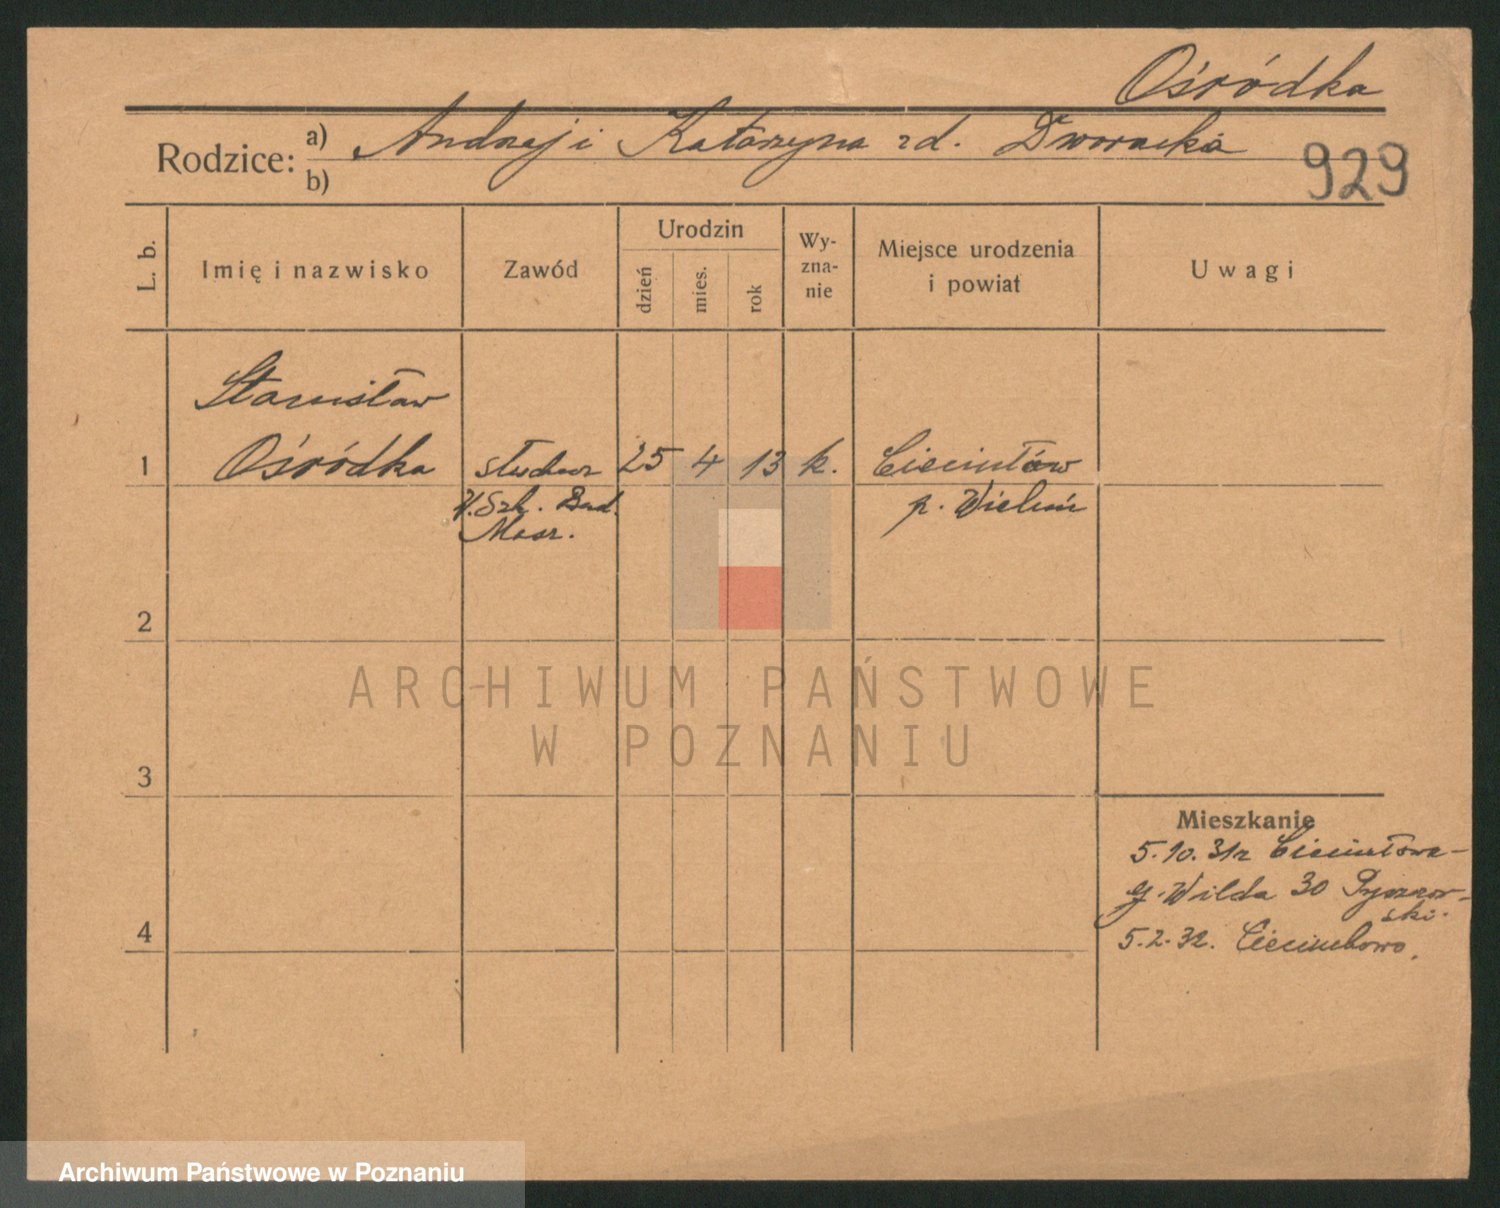 Ośródka
Rodzice: a) Andrzej i Katarzyna zd. Dworacka
b)
929
L. b.
Imię i nazwisko
Zawód
Urodzin
dzień
mies.
rok
Wy-
zna-
nie
Miejsce urodzenia
i powiat
Uwagi
Stanisław
1 Ośródka słuchacz 25 4 13 k. Cieciułów
W. Szk. Bud. p. Wieluń
Masz.
2
ARCHIWUM PAŃSTWOWE
W POZNANIU
3
Mieszkanie
5.10.31r
g. Wilda 30 Pyszkow-
ski.
4 5.2.32.
Archiwum Państwowe w Poznaniu